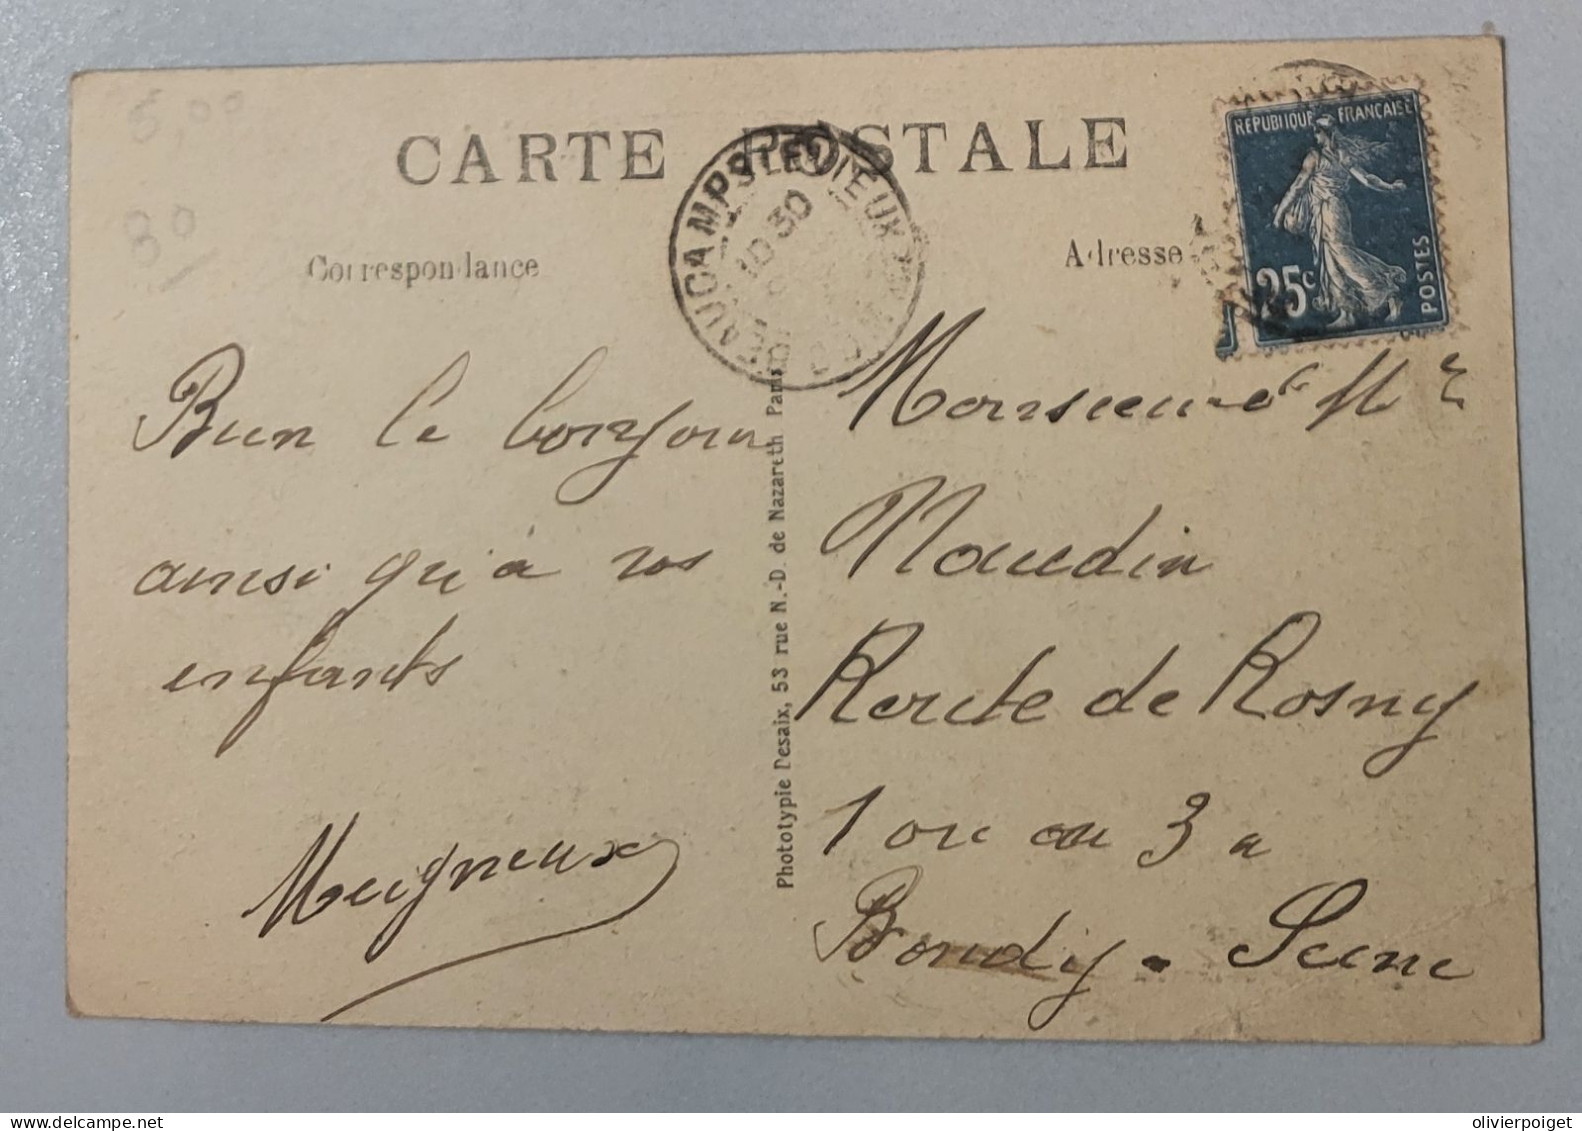 5,00
80
CARTE POSTALE
Correspondance
Adresse
BEAUCAMPS LE VIEUX
10 30
SOMME
REPUBLIQUE FRANCAISE
25c
POSTES
Bien le bonjour
ainsi qu'à vos
enfants
Meigneux
Phototypie Desaix, 53 rue N.-D. de Nazareth Paris
Monsieur et Me
Naudin
Route de Rosny
1 ou au 3 a
Bondy - Seine
delcampe.net
olivierpoiget